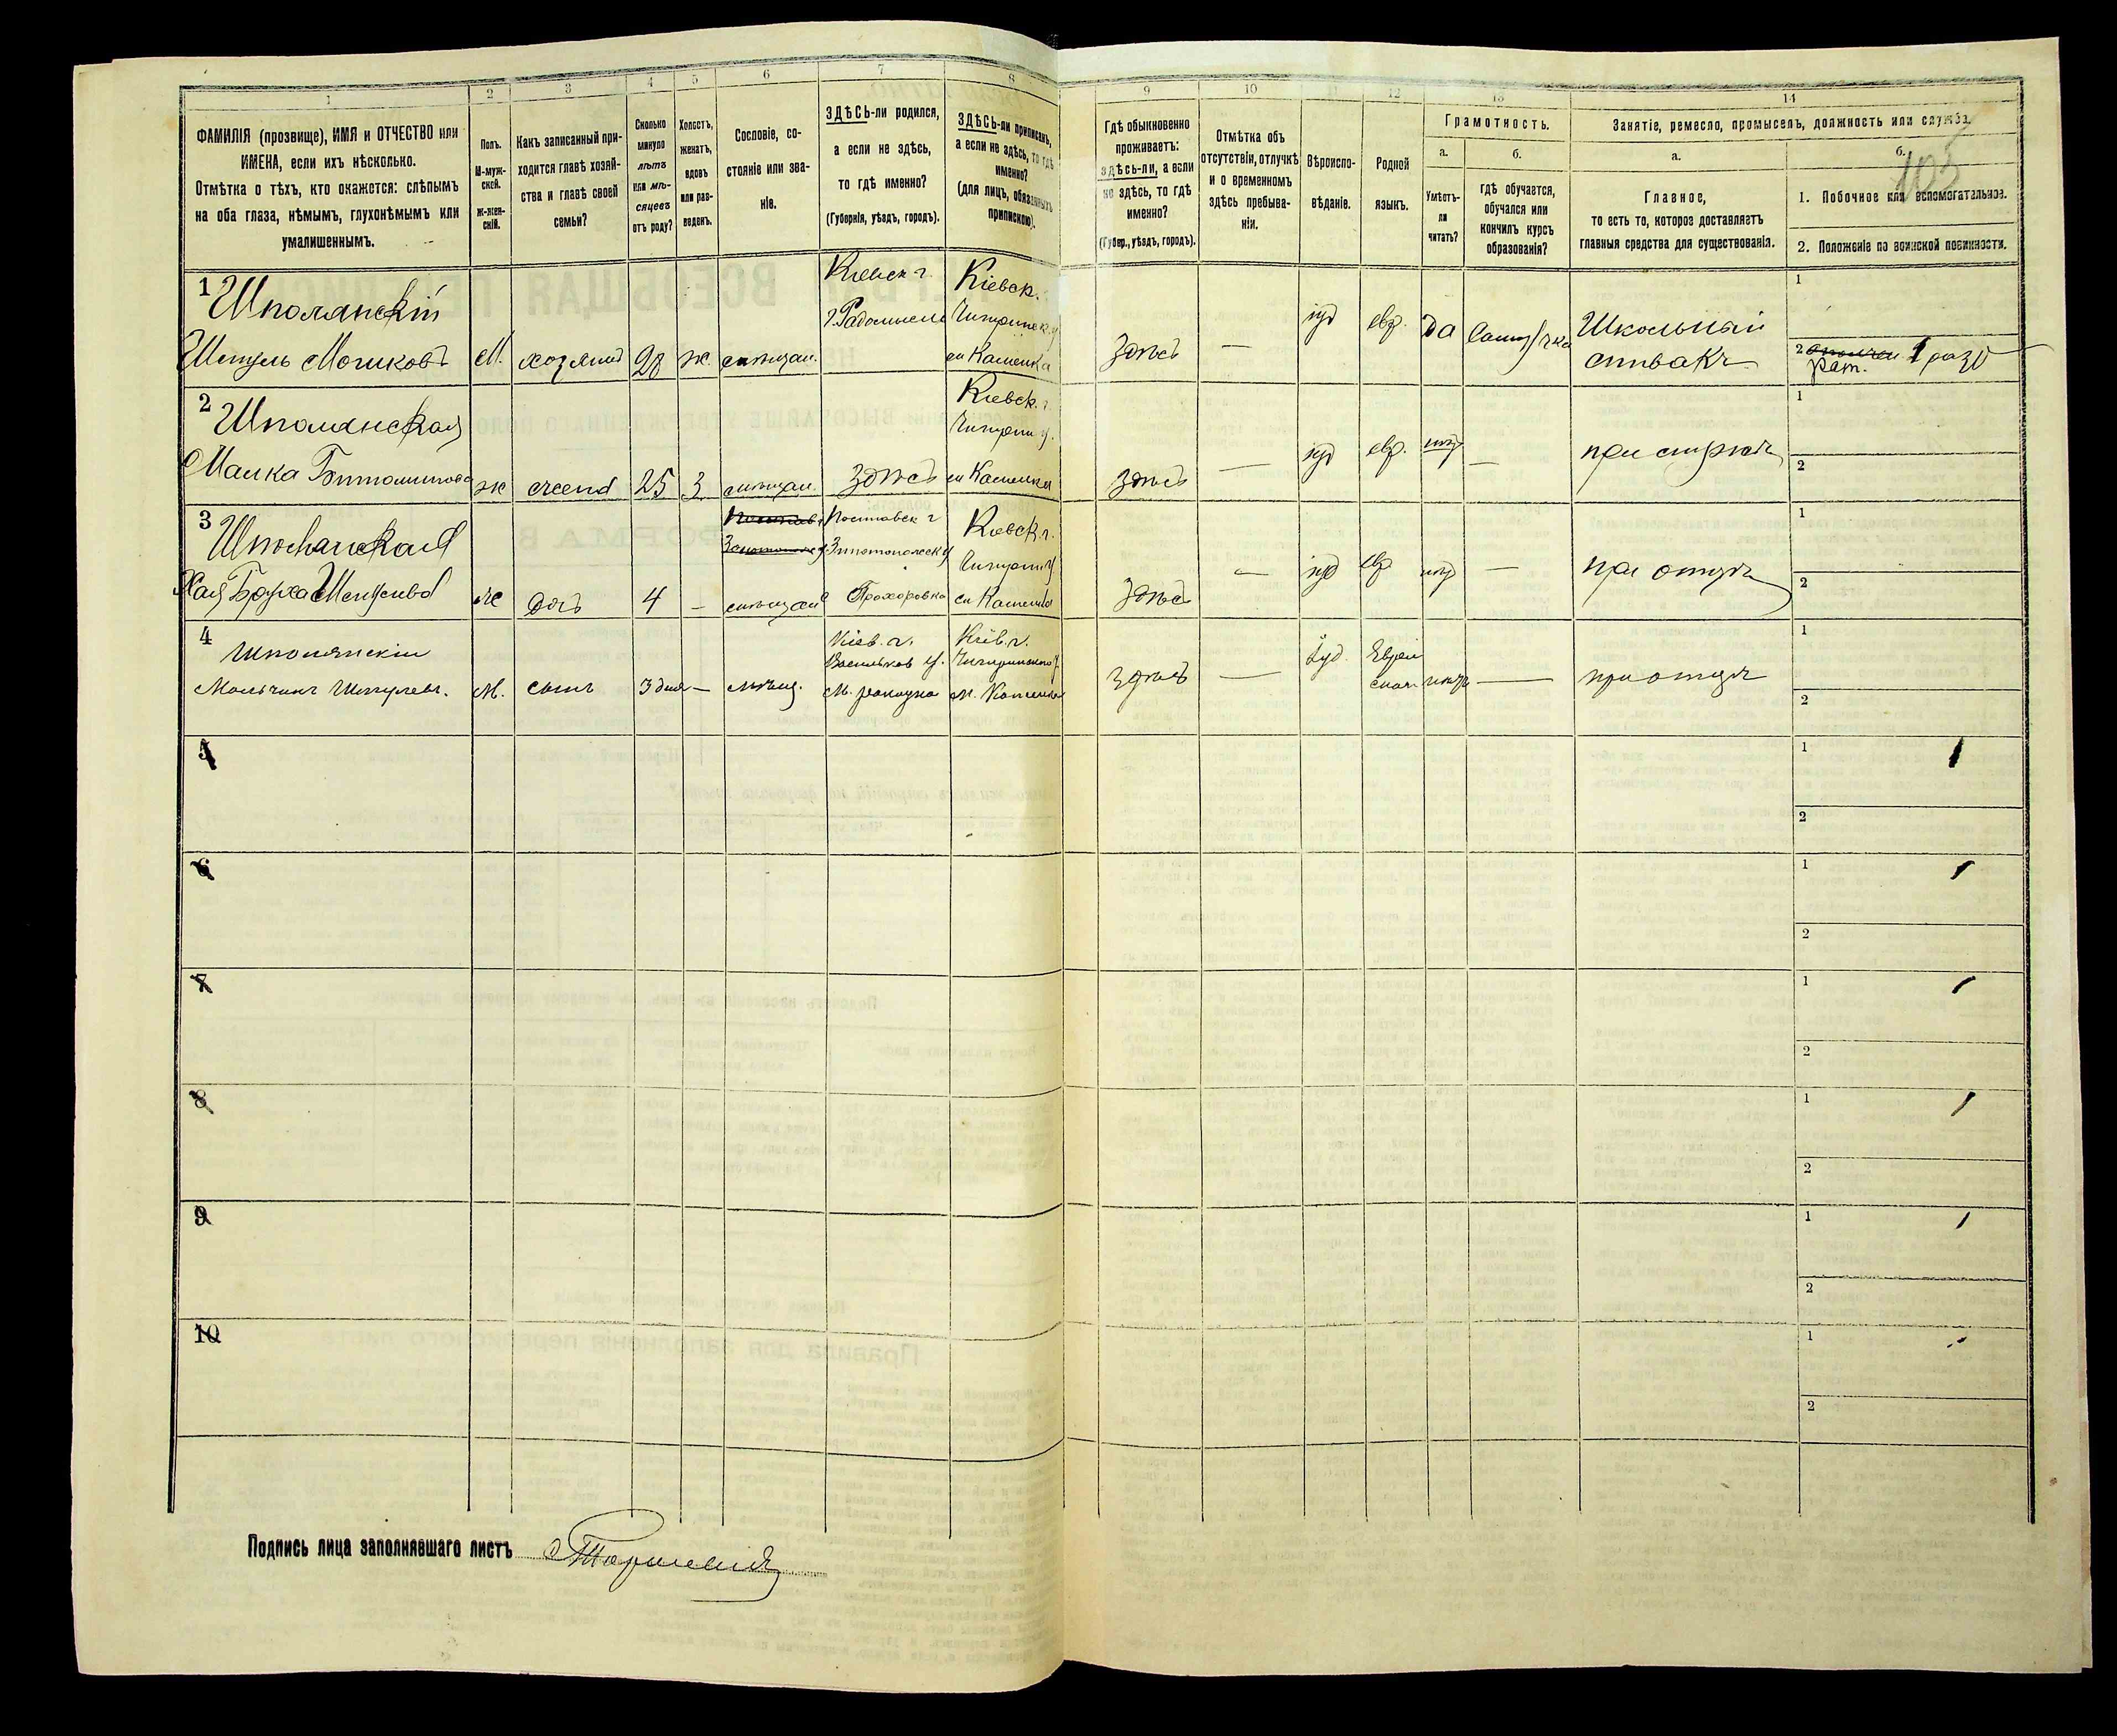 1 2 3 4 5 6 7 8 9 10 11 12 13 14
ФАМИЛІЯ (прозвище), ИМЯ и ОТЧЕСТВО или
ИМЕНА, если ихъ нѣсколько.
Отмѣтка о тѣхъ, кто окажется: слѣпымъ
на оба глаза, нѣмымъ, глухонѣмымъ или
умалишеннымъ.
Полъ.
М-муж-
ской.
Ж-жен-
скій.
Какъ записанный при-
ходится главѣ хозяй-
ства и главѣ своей
семьи?
Сколько
минуло
лѣтъ
или мѣ-
сяцевъ
отъ роду?
Холостъ,
женатъ,
вдовъ
или раз-
веденъ.
Сословіе, со-
стояніе или зва-
ніе.
ЗДѢСЬ-ли родился,
а если не здѣсь,
то гдѣ именно?
(Губернія, уѣздъ, городъ).
ЗДѢСЬ-ли приписанъ,
а если не здѣсь, то гдѣ
именно?
(для лицъ, обязанныхъ
припискою).
Гдѣ обыкновенно
проживаетъ:
здѣсь-ли, а если
не здѣсь, то гдѣ
именно?
(Губер., уѣздъ, городъ).
Отмѣтка объ
отсутствіи, отлучкѣ
и о временномъ
здѣсь пребыва-
ніи.
Вѣроиспо-
вѣданіе.
Родной
языкъ.
Грамотность.
а.
Умѣетъ-
ли
читать?
б.
гдѣ обучается,
обучался или
кончилъ курсъ
образованія?
Занятіе, ремесло, промыселъ, должность или служба.
а.
Главное,
то есть то, которое доставляетъ
главныя средства для существованія.
б.
105
1. Побочное или вспомогательное.
2. Положеніе по воинской повинности.
1 Шполянскій
Шмуль Мошковъ
М. хозяинъ 28 ж. мѣщан.
Кіевск г.
г. Радомысль
Кіевск.
Чигринск у
м Каменка
здѣсь — іуд евр. да
Школьный
1
2 ратн. 1 разр
2 Шполянская
Малка
ж жена 25 з. мѣщан. здѣсь
Кіевск. г.
Чигрин у.
м Каменка
здѣсь — іуд евр. нѣт —
1
2
3 Шполянская
Хая Бруха Шмулева
ж дочь 4 — мѣщан
Полтавск г
Золотоношск у
Прохоровка
Кіевск. г.
Чигрин у
м Каменка
здѣсь — іуд евр нѣт — при отцѣ
1
2
4 Шполянскій
Мальчикъ Шмулевъ.
М. сынъ 3 дня — мѣщ.
Кіев. г.
Васильков у.
м. Ракитна
Кіев. г.
Чигиринскаго у.
м. Каменка
здѣсь — Іуд. Еврей
ский нѣтъ — при отцѣ
1
2
5
1
2
6
1
2
7
1
2
8
1
2
9
1
2
10
1
2
Подпись лица заполнявшаго листъ